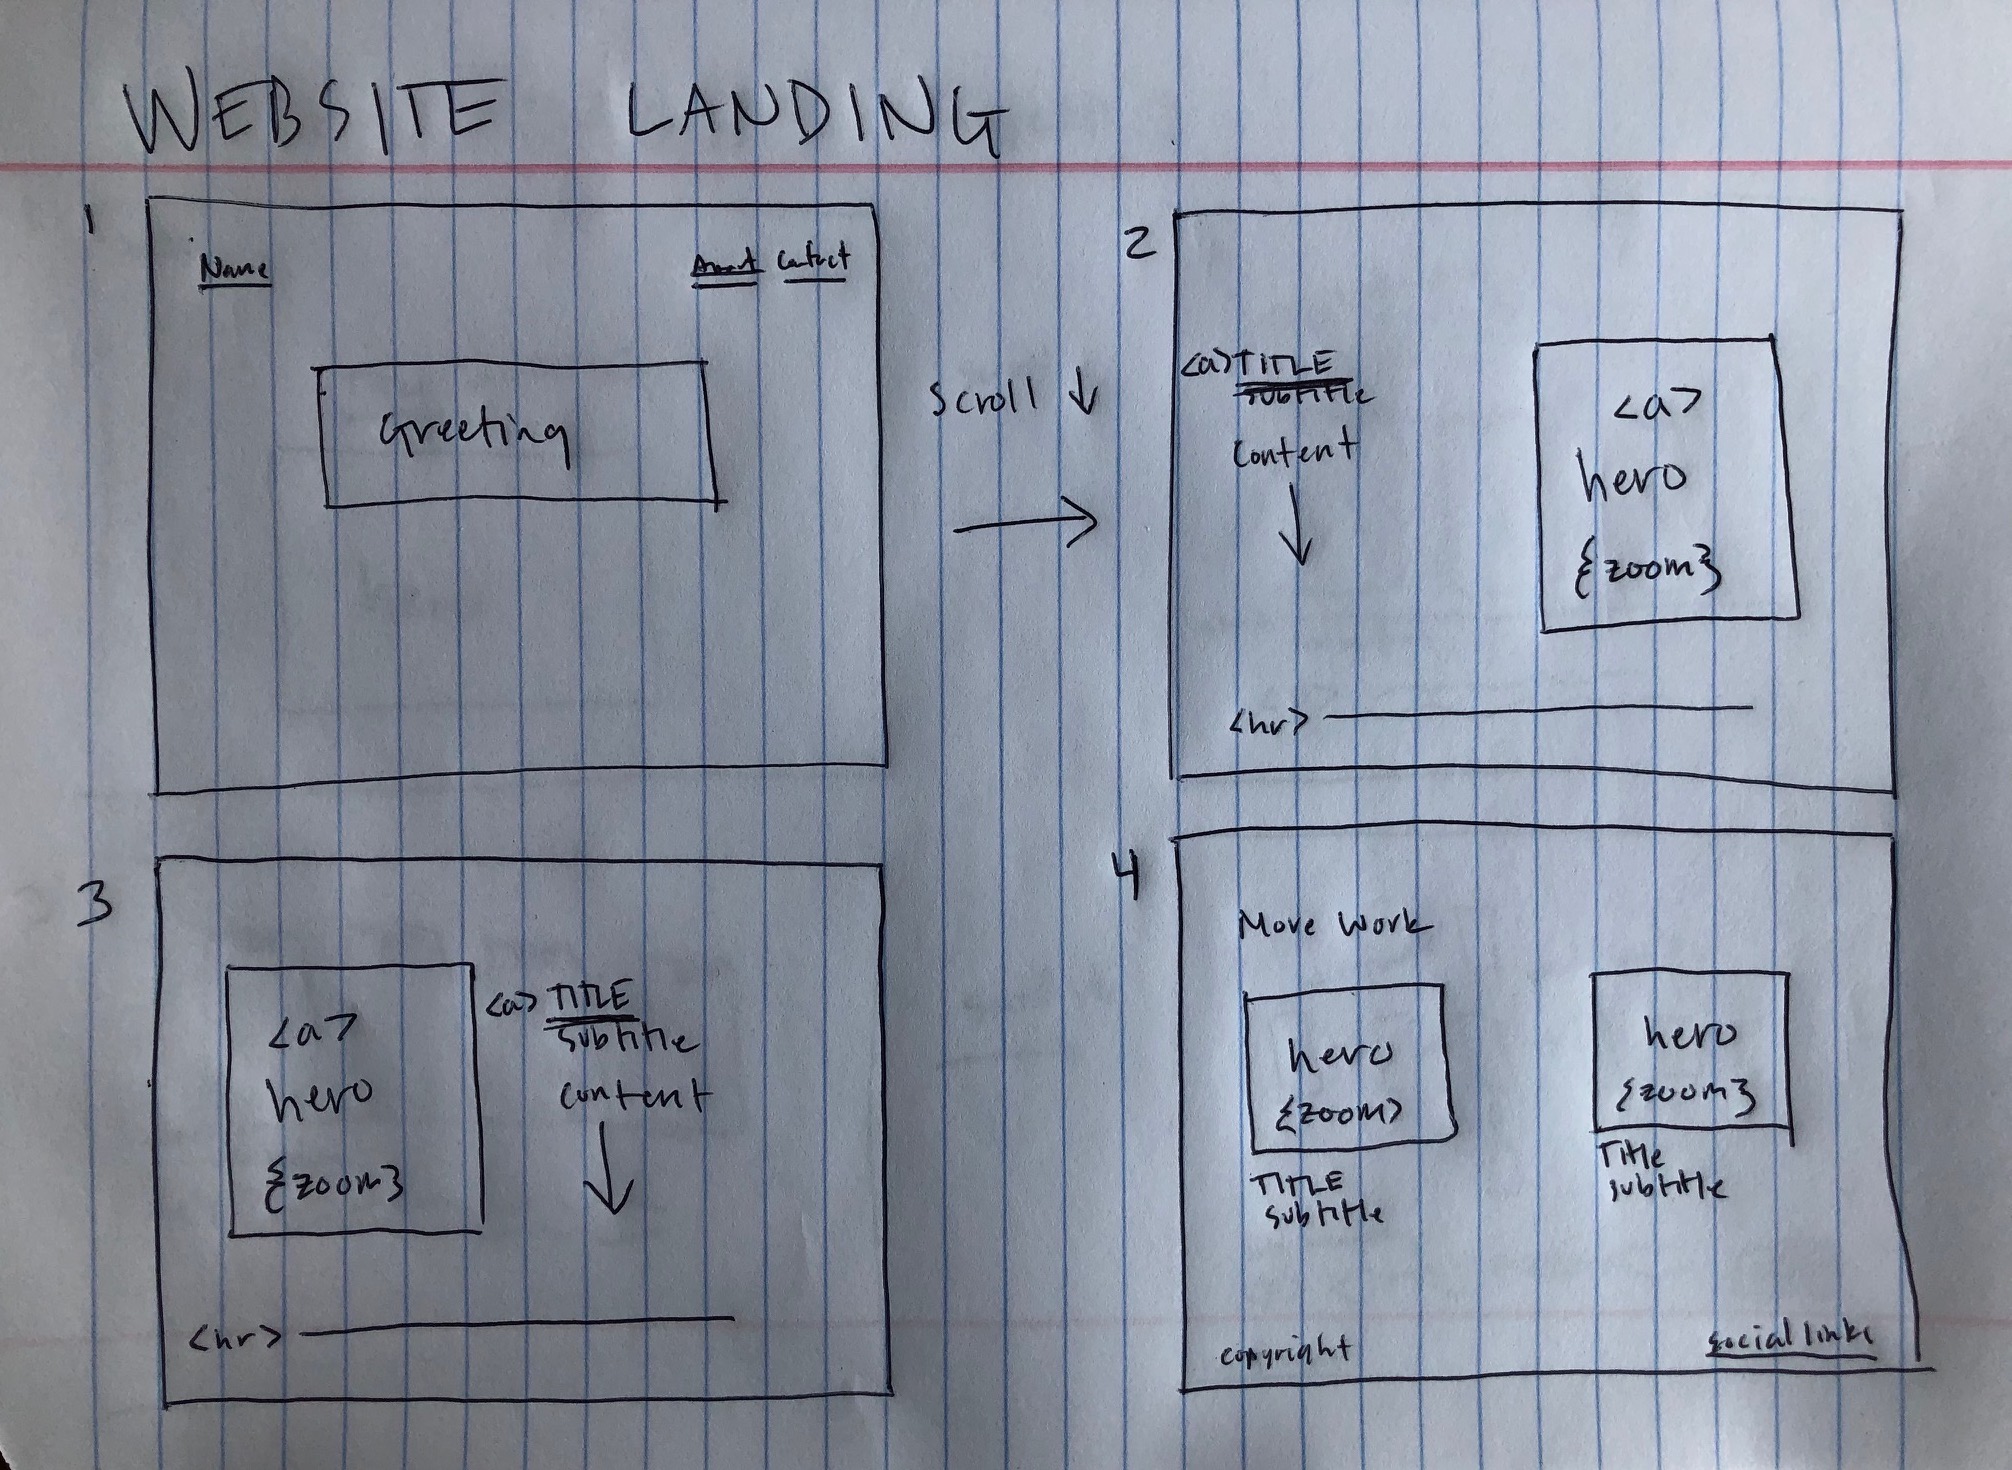 WEBSITE LANDING
1
Name
Contact
Greeting
Scroll ↓
2
<a> TITLE
subtitle
Content
<a>
hero
{zoom}
<hr>
3
<a>
hero
{zoom}
<a> TITLE
subtitle
content
<hr>
4
More Work
hero
{zoom}
TITLE
subtitle
hero
{zoom}
Title
subtitle
copyright
social links